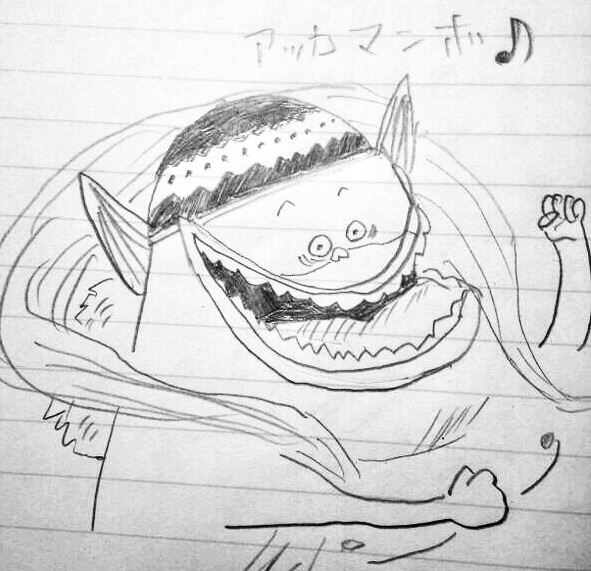 アッカマンボ♪